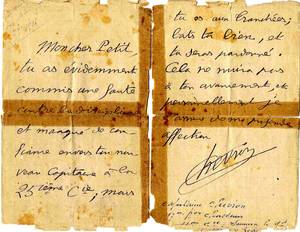 Mon cher Petit
tu as évidemment
commis une faute
contre la discipline
et manqué de con
fiance envers ton nou
veau Capitaine à la
25ième Cie; mais
tu es aux tranchées;
bats toi bien, et
tu seras pardonné.
Cela ne nuira pas
à ton avancement, et
personnellement je
affection
Capitaine